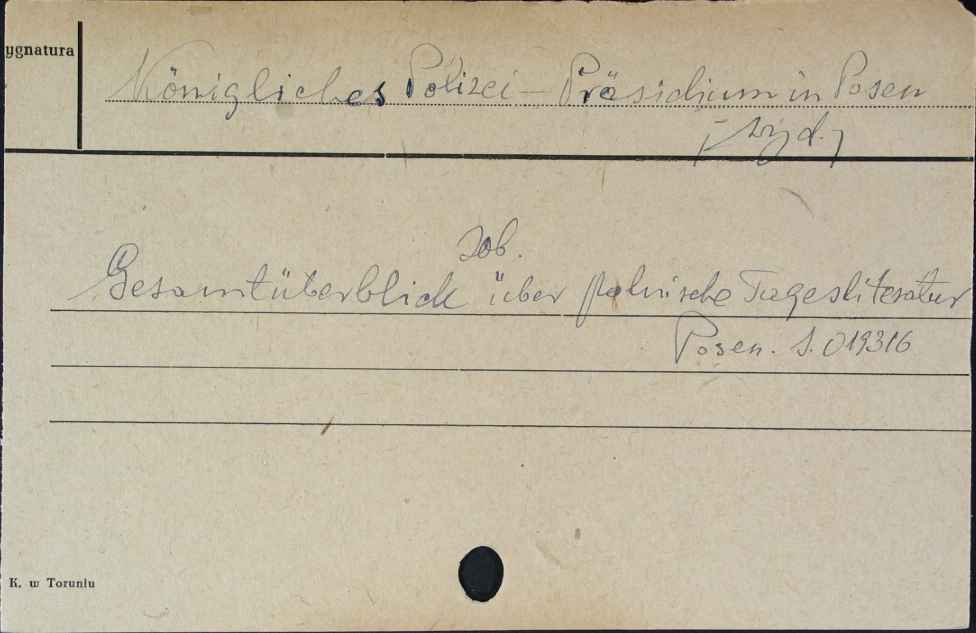 ygnatura
Königliches Polizei - Präsidium in Posen
[wyd.]
zob.
Gesamtüberblick über polnische Tagesliteratur
Posen. S. 019316
K. w Toruniu